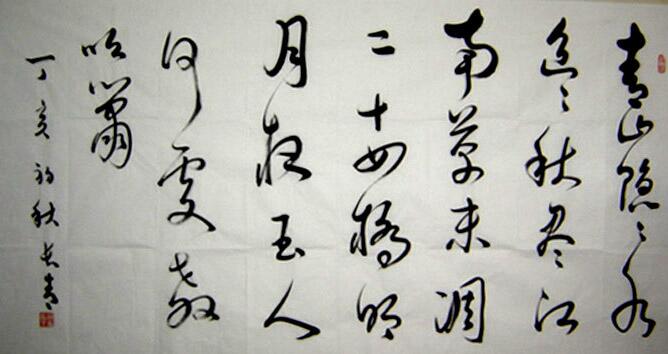 青山隐隐水
迢迢秋尽江
南草未凋
二十四橋明
月夜玉人
何處教
吹簫
丁亥初秋长青